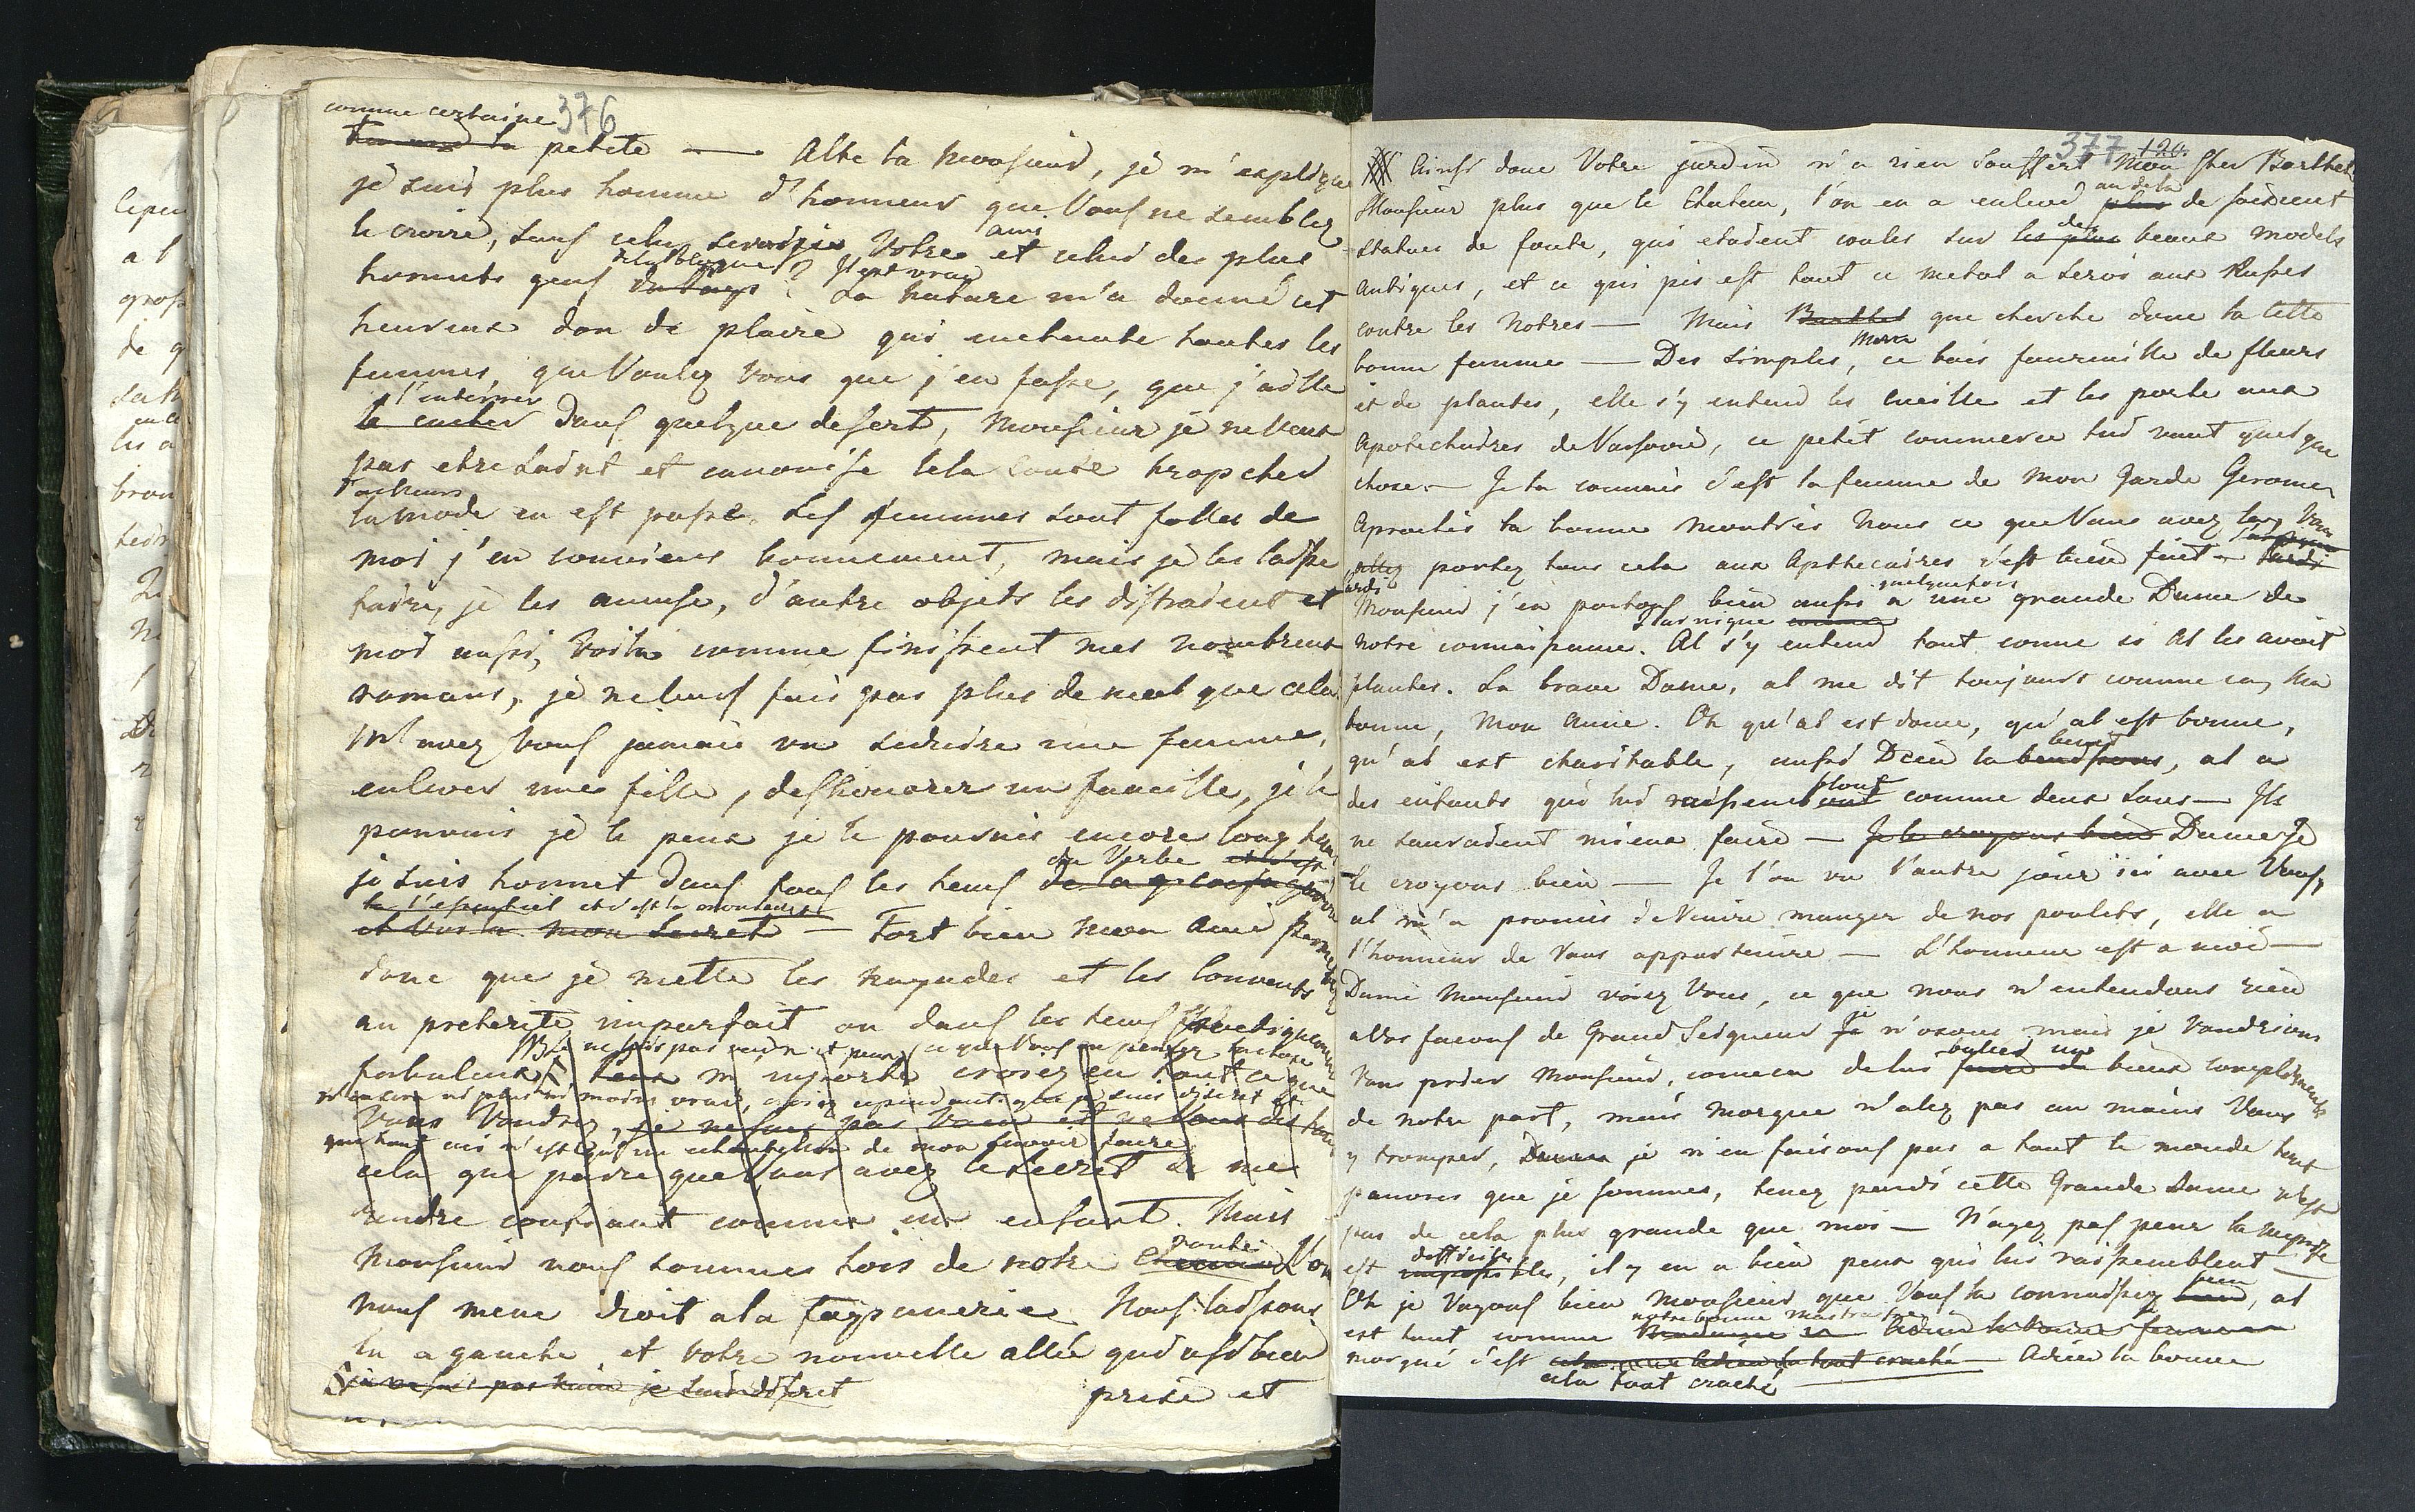 comme certaine 376
la petite — Alte la Monsieur, je m'explique
je suis plus homme d'honneur que Vous ne semblez
le croire, sans cela serois je Votre ami et celui des plus
honnets gens du Pays ? Il est vrai La Nature m'a donné cet
heureux don de plaire qui enchante toutes les
femmes, que Voulez Vous que j'en fasse, que j'aille
l'enterrer
le cacher dans quelque desert, Monsieur je ne Veux
pas etre Saint et canonisé cela coute trop cher
d'ailleurs
la mode en est passé. Les femmes sont folles de
moi j'en conviens bonnement, mais je les laisse
faire, je les amuse, d'autre objets les distraient et
moi aussi, Voila comme finissent mes nombreux
romans, je ne leurs fais pas plus de mal que cela.
M'avez Vous jamais vu seduire une femme,
enlever une fille, deshonorer un famille, je le
pouvais je le peux je le pourais encore long tems
du Verbe
je suis honnet dans tous les tems
l'essentiel et c'est la
et Voila mon Secret — Fort bien mon ami
donc que je mette les nayades et les Couvents
au preterite imparfait ou dans les tems
fabuleux m'importe croiez en tout ce que
Vous Voudrez, je ne suis pas
que tout ceci n'est qu'un echantillon de mon savoir faire
cela que parce que Vous avez le Secret de me
rendre confiant comme un enfant. Mais
Monsieur nous sommes hors de notre route
chemin
nous mene droit a la faysanerie. Nous laissons
la a gauche et Votre nouvelle allée qui est bien
je ne suis pas je suis discret prise et
377 120.
Ainsi donc Votre jardin n'a rien Souffert Mon cher Barthel
Monsieur plus que le Chateau, l'on en a enlevé plus au dela de soixent
statues de fonte, qui etaient coulés sur les plus des beaux models
antiques, et ce qui pis est tout ce metal a servi aux Russes
contre les Notres — Mais Barthel que cherche donc la cette
bonne femme — Des Simples, ce bois fourmille de fleurs
et de plantes, elle s'y entend les cueille et les porte aux
Apotechaires de Varsovie, ce petit commerce lui vaut quelque
chose — Je la connais c'est la femme de mon garde Gerome
Aprochés la bonne montrés Nous ce que Vous avez la, Vous
allez portez tous cela aux Apothecaires c'est bien fait —
quelquefois
Monsieur j'en portons bien aussi a une grande Dame de
notre connaissance. Al s'y entend tout comme si al les avait
plantes. La brave Dame, al me dit toujours comme ca, ma
bonne, mon amie. Oh qu'al est douce, qu'al est bonne,
qu'al est charitable, aussi Dieu la benissons, al a
des enfants qui lui raissemblont comme deux Sous — Ils
ne sauraient mieux faire — Je le croyons bien Dame Je
le croyons bien — Je l'on vu l'autre jour ici avec Vous,
al m'a promis de Venire manger de nos poulets, elle a
l'honneur de Vous appartenire — L'honneur est a moi —
Dame Monsieur voiez Vous, ce que nous n'entendons rien
a Vos facons de Grand Seigneur je n'osons mais je Vaudrions
Vous prier Monsieur, comen de lui faire de bailler un beaux complements
de notre part, mais morgue n'alez pas au moins Vous
y tromper, Dame je n'en faisons pas a tout le monde tout
pauvres que je sommes, tenez pardi cette Grande Dame n'est
pas de cela plus grande que moi — N'ayez pas peur la meprise
est impossible difficile, il y en a bien peux qui lui raissemblent —
Oh je Voyons bien Monsieur que Vous la connaissiez bien, al
est tout comme notre bonne
morgué c'est Adieu la bonne
cela tout craché